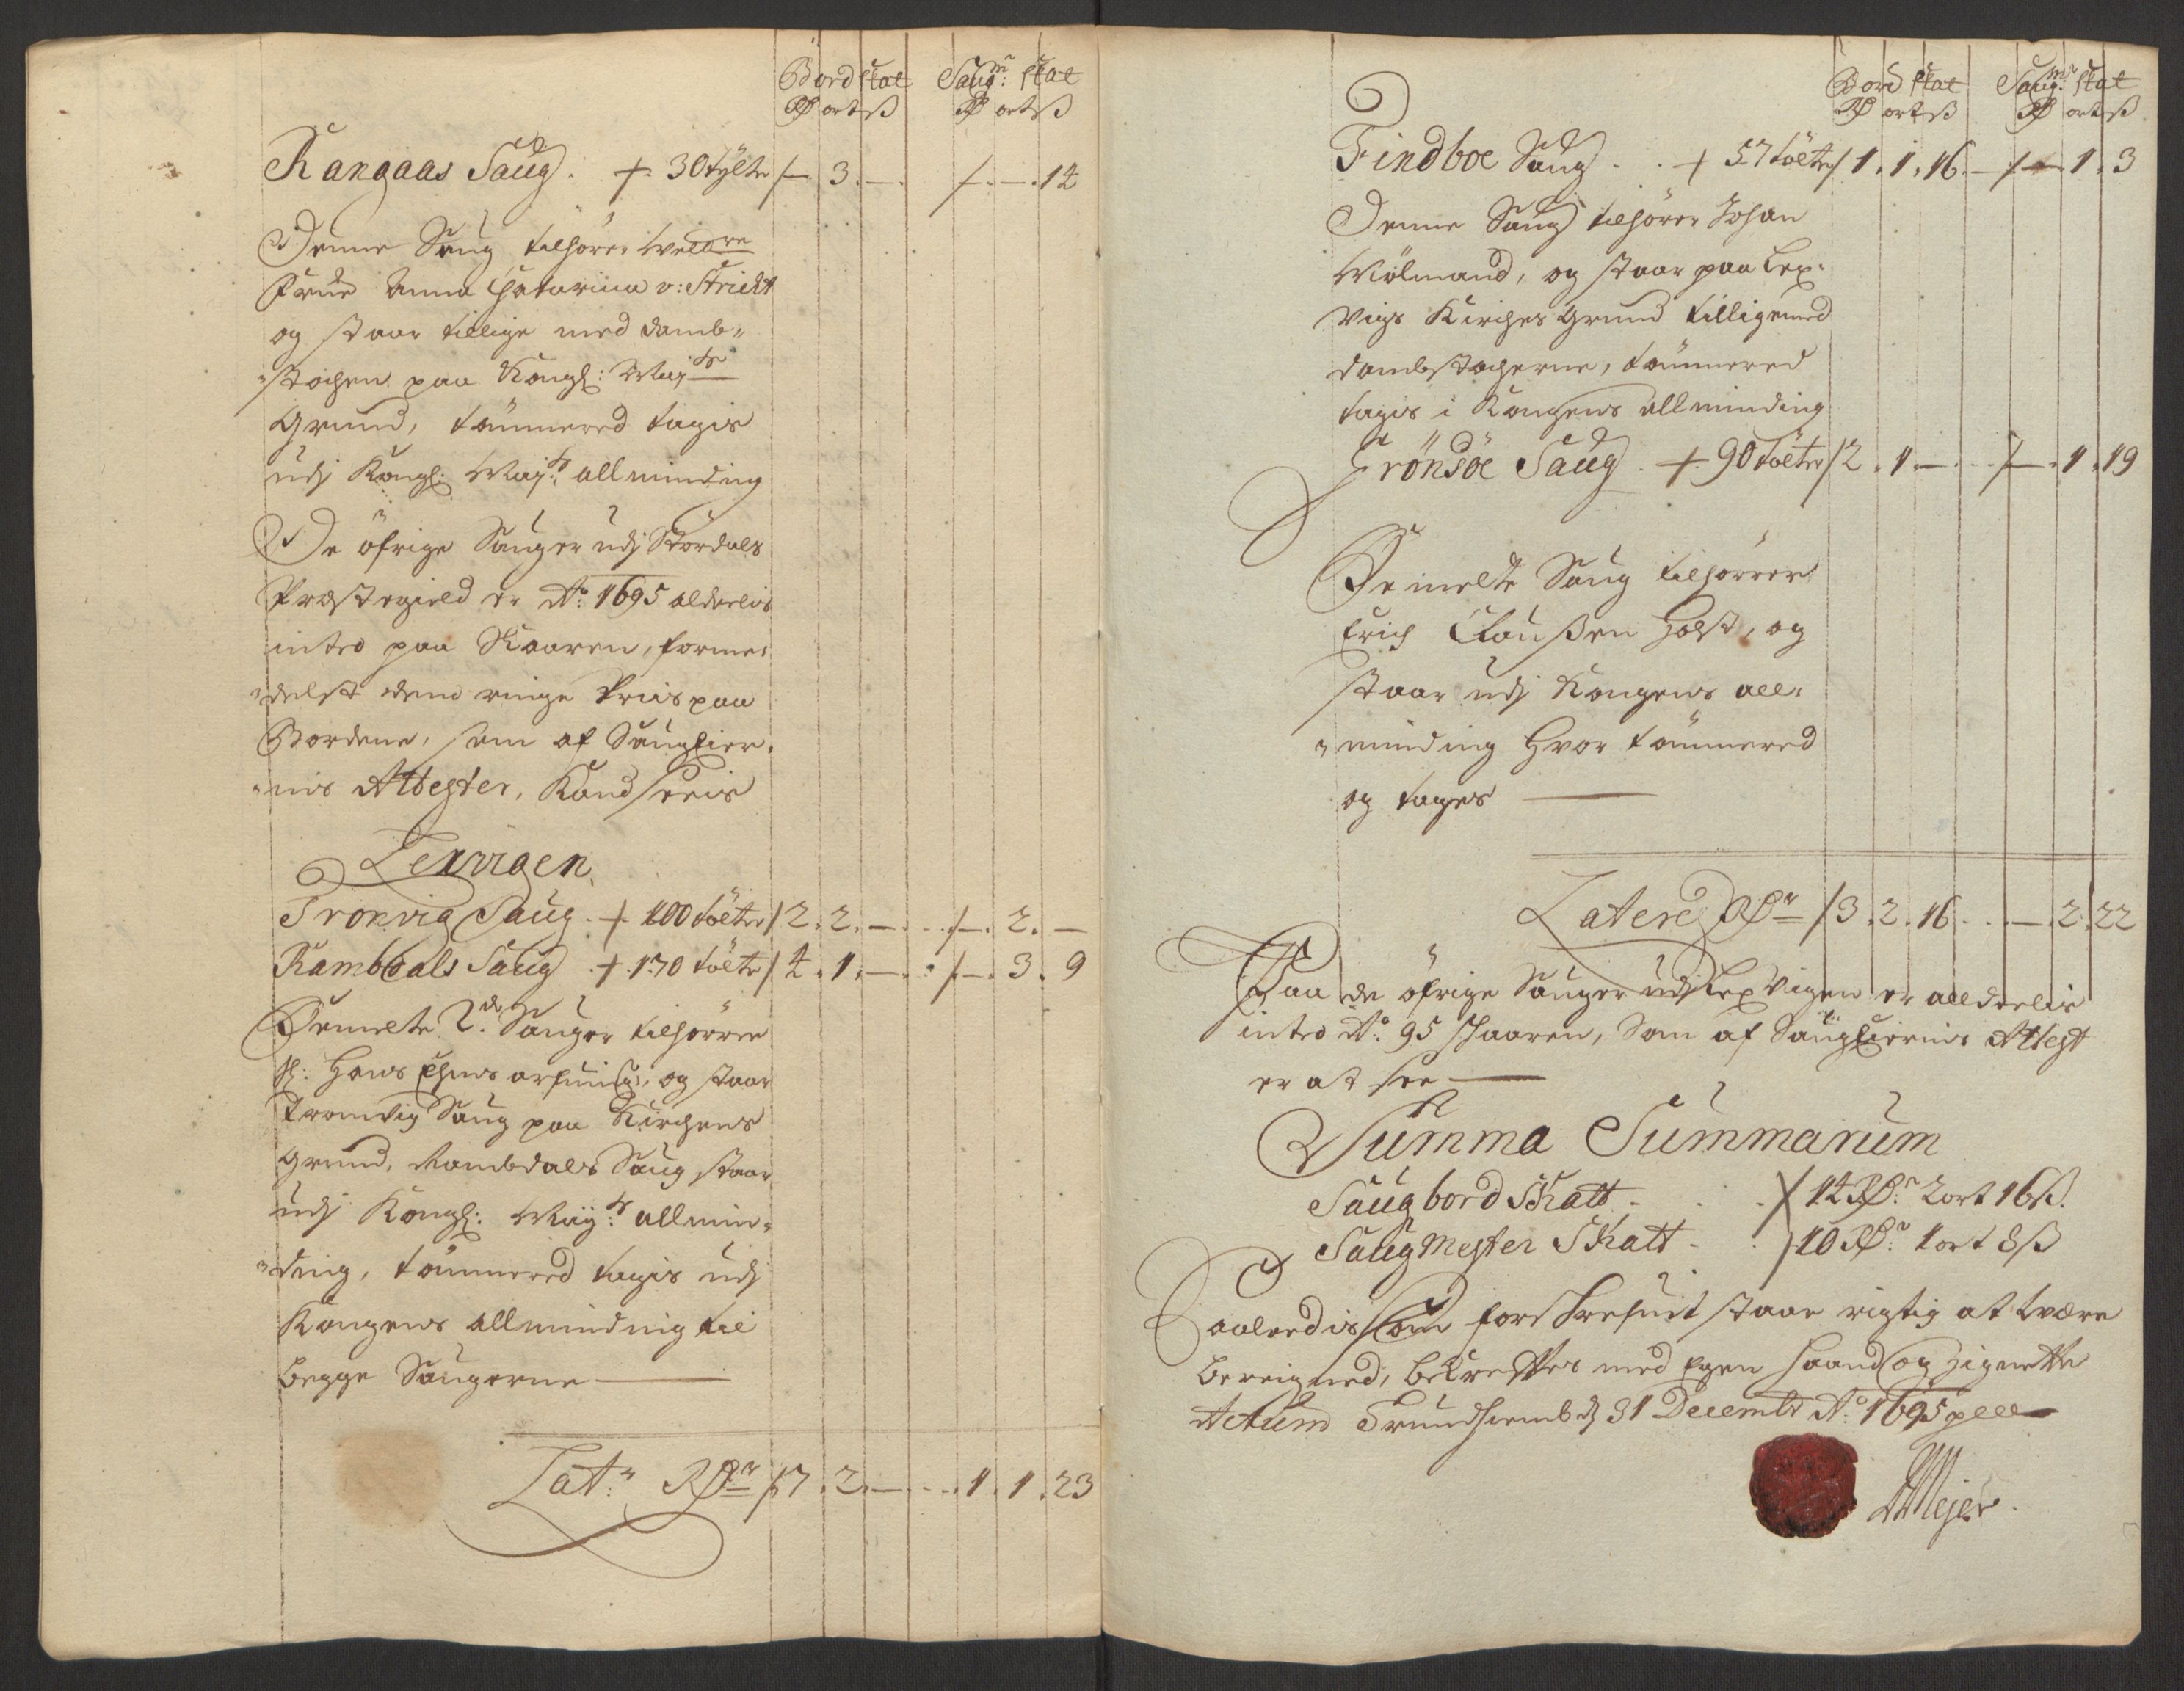 Bord skat Saug m: skat
Rd ort ß Rd ort ß
Rangaas Saug. + 30 tylter /— 3.—. /—.—.14
Denne Saug tilhører Welb:ne
Frue Anna Catarina v: Stricht
og staar tillige med damb-
stochen paa Kongl: May:ts
Grund, tømmered tagis
udj Kongl: May:ts allminding
De öfrige Sauger udj Stordals
Præstegield er Ao: 1695 alderlis
inted paa Skaaren, forme-
delst dend ringe Priis paa
Bordene, som af Saugfier-
nis Attester, Kand sees
Lexvigen
Tronvig Saug. + 100 tölter / 2. 2. — . . /—. 2. —
Rambdals Saug .+. 170 tölter / 4. 1. — . : /—. 3. 9
Bemelte 2de Sauger tilhörrer
Sl: Hans arfuinger, og staar
Tronvig Saug paa Kirchens
Grund, Rambdals Saug staar
udj Kongl: May:ts allmin-
ding, tömmered tagis udj
Kongens allminding til
begge Saugerne —
Lat:r Rdr /7. 2. — . . . 1. 1. 23
Bord skat Saug m: skat
Rd ort ß Rd ort ß
Findboe Saug . . + 57 tölter / 1. 1. 16. — /— 1. 3
Denne Saug tilhörer Johan
Wölmand, og staar paa Lex-
vigs Kirches Grund tilligemed
dambstocherne, tömmered
tagis i Kongens allminding
Grönsöe Saug . + 90 tölter / 2. 1. — . . /—. 1. 19
Bemelte Saug tilhörrer
Erich Claußen Holst, og
staar udj Kongens all-
minding hvor tömmered
og tages —
Latere Rdr /3. 2. 16. . . —. 2. 22
Paa de öfrige Sauger udj Lexvigen er allderlis
inted Ao: 95 skaaren, Som af Saugfiernis Attest
er at see —
Summa Summarum
Saugbord Skatt . . . / 14 Rdr 2 ort 16 ß.
Saug Mester Skatt . . / 10 Rdr 1 ort 8 ß
Saaledis som forskrefuit staar rigtig at være
bereigned, bekreftes med Egen haand og Zignette
Actum Trundhiemb d 31 Decembr Ao: 1695
Mejer.